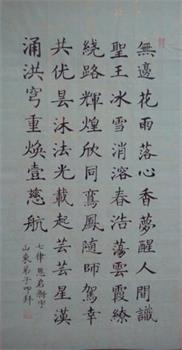 無邊花雨落心香夢醒人間識
聖王冰雪消溶春浩蕩雲霞繚
繞路輝煌欣同鸞鳳隨師駕幸
共优曇沐法光載起芸芸星漢
涌洪穹重煥壹慈航
七律
山東弟子叩拜